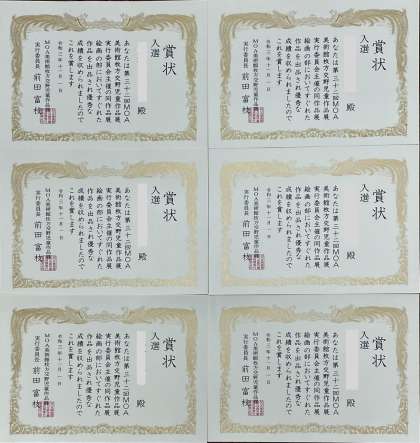 賞状
入選
殿
あなたは第三十二回MOA
美術館枚方交野児童作品展
実行委員会主催の同作品展
絵画の部においてすぐれた
作品を出品され優秀な
成績を収められましたので
これを賞します
令和二年十一月一日
MOA美術館枚方交野児童作品展
実行委員長 前田富枝
賞状
入選
殿
あなたは第三十二回MOA
美術館枚方交野児童作品展
実行委員会主催の同作品展
絵画の部においてすぐれた
作品を出品され優秀な
成績を収められましたので
これを賞します
令和二年十一月一日
MOA美術館枚方交野児童作品展
実行委員長 前田富枝
賞状
入選
殿
あなたは第三十二回MOA
美術館枚方交野児童作品展
実行委員会主催の同作品展
絵画の部においてすぐれた
作品を出品され優秀な
成績を収められましたので
これを賞します
令和二年十一月一日
MOA美術館枚方交野児童作品展
実行委員長 前田富枝
賞状
入選
殿
あなたは第三十二回MOA
美術館枚方交野児童作品展
実行委員会主催の同作品展
絵画の部においてすぐれた
作品を出品され優秀な
成績を収められましたので
これを賞します
令和二年十一月一日
MOA美術館枚方交野児童作品展
実行委員長 前田富枝
賞状
入選
殿
あなたは第三十二回MOA
美術館枚方交野児童作品展
実行委員会主催の同作品展
絵画の部においてすぐれた
作品を出品され優秀な
成績を収められましたので
これを賞します
令和二年十一月一日
MOA美術館枚方交野児童作品展
実行委員長 前田富枝
賞状
入選
殿
あなたは第三十二回MOA
美術館枚方交野児童作品展
実行委員会主催の同作品展
絵画の部においてすぐれた
作品を出品され優秀な
成績を収められましたので
これを賞します
令和二年十一月一日
MOA美術館枚方交野児童作品展
実行委員長 前田富枝